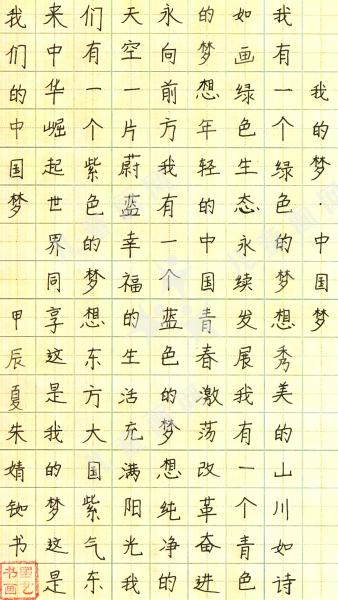 我的梦·中国梦
我有一个绿色的梦想秀美的山川如诗
如画绿色生态永续发展我有一个青色
的梦想年轻的中国青春激荡改革奋进
永向前方我有一个蓝色的梦想纯净的
天空一片蔚蓝幸福的生活充满阳光我
们有一个紫色的梦想东方大国紫气东
来中华崛起世界同享这是我的梦这是
我们的中国梦 甲辰夏朱婧铷书
书画